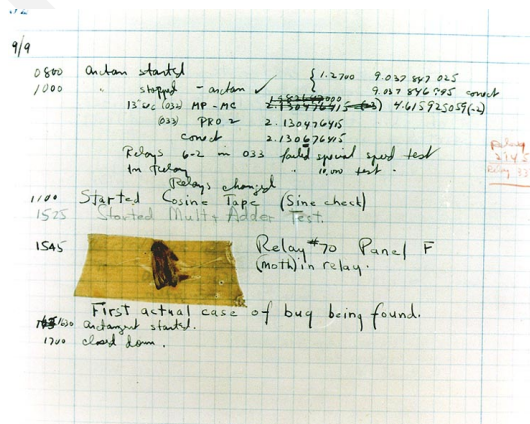 9/9
0800 arctan started
1.2700 9.037 847 025
1000 " stopped - arctan ✓ 9.037 846 995 correct
13" sec (032) MP - MC 2.130476415 (-3) 4.615925059(-2)
(033) PRO 2 2.130476415
correct 2.130676415
Relays 6-2 in 033 failed special speed test
In Relay " 10,000 test .
Relay
2145
Relay 33
Relays changed
1100 Started Cosine Tape (Sine check)
1525 Started Mult + Adder Test.
1545 Relay #70 Panel F
(moth) in relay.
First actual case of bug being found.
1630 arctangent started.
1700 closed down .